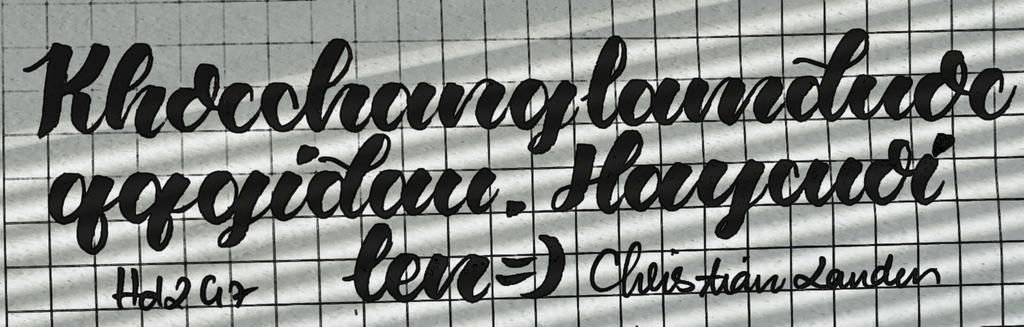 Khocchanglamduoc
qqgidau. Haycuoi
len=)
Hd2G7 Christian Landen